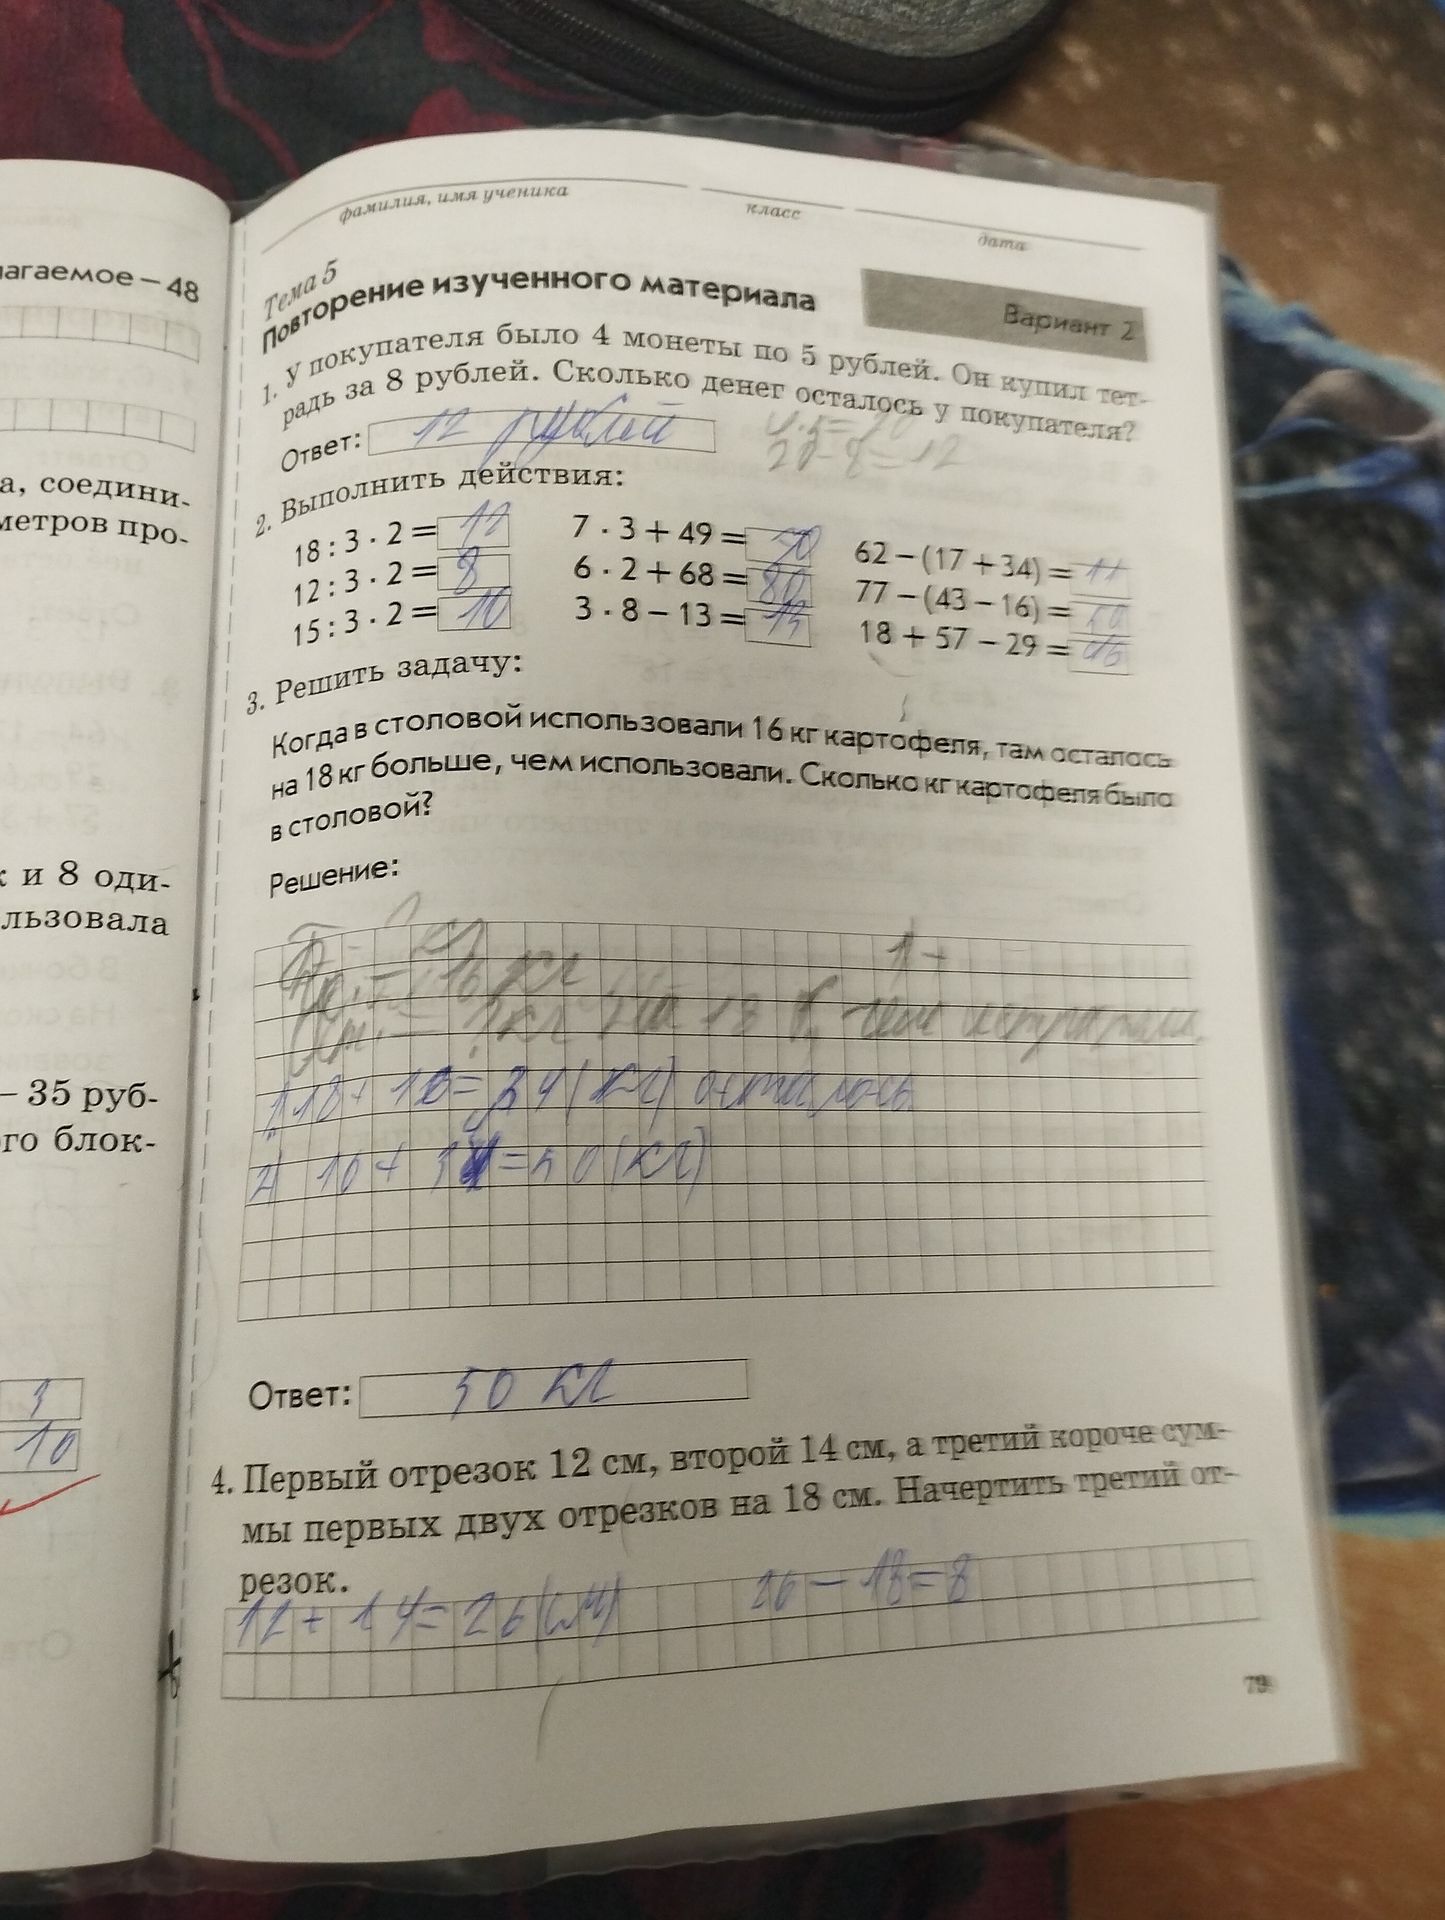 лагаемое – 48
а, соедини-
метров про-
к и 8 оди-
льзовала
– 35 руб-
го блок-
3
10
фамилия, имя ученика
класс
дата
Тема 5
Повторение изученного материала
Вариант 2
1. У покупателя было 4 монеты по 5 рублей. Он купил тет-
радь за 8 рублей. Сколько денег осталось у покупателя?
Ответ: 12 рублей
4·5=20
20-8=12
2. Выполнить действия:
18 : 3 · 2 = 12
12 : 3 · 2 = 8
15 : 3 · 2 = 10
7 · 3 + 49 = 70
6 · 2 + 68 = 80
3 · 8 – 13 =
62 – (17 + 34) = 11
77 – (43 – 16) = 50
18 + 57 – 29 = 46
3. Решить задачу:
Когда в столовой использовали 16 кг картофеля, там осталось
на 18 кг больше, чем использовали. Сколько кг картофеля было
в столовой?
Решение:
16 кг
Ост. = ? кг на 18 б, чем
1) 18+16=34(кг) осталось.
2) 16+34=50(кг)
Ответ: 50 кг
4. Первый отрезок 12 см, второй 14 см, а третий короче сум-
мы первых двух отрезков на 18 см. Начертить третий от-
резок.
12+14=26(см) 26-18=8
79